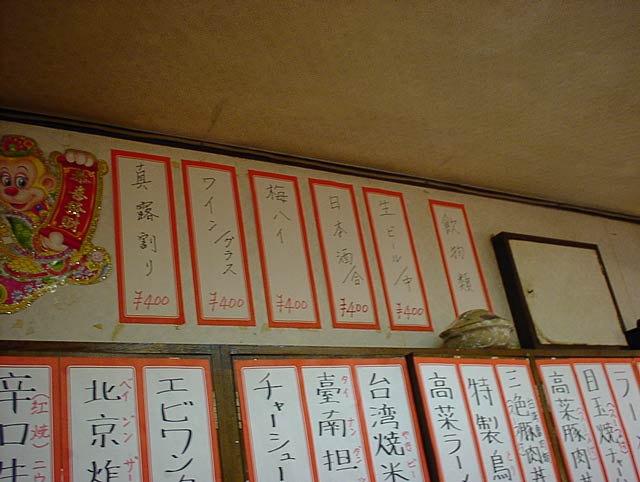 飲物類
生ビール/中 ¥400
日本酒/合 ¥400
梅ハイ ¥400
ワイン/グラス ¥400
真露割り ¥400
ラー
目玉焼チャー
高菜豚肉
三色豚肉丼
特製鳥
高菜ラー
台湾焼米
臺南担
タイナンタン
チャーシュー
エビワンタ
北京炸
ペイジンザー
辛口牛
(紅焼)ニウ